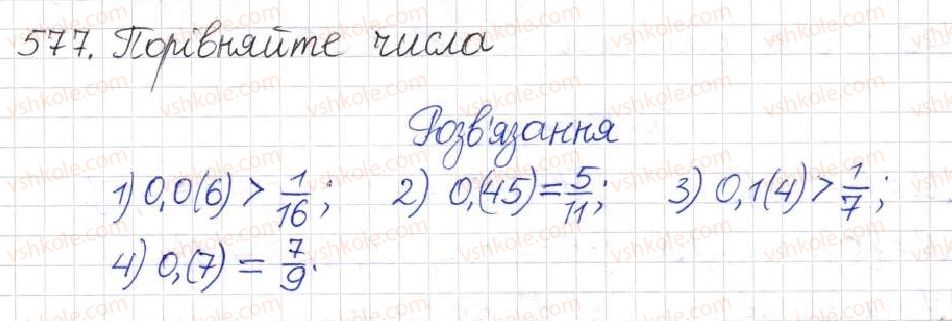 577. Порівняйте числа
Розв'язання
1) 0,0(6) > 1/16; 2) 0,(45) = 5/11; 3) 0,1(4) > 1/7;
4) 0,(7) = 7/9.